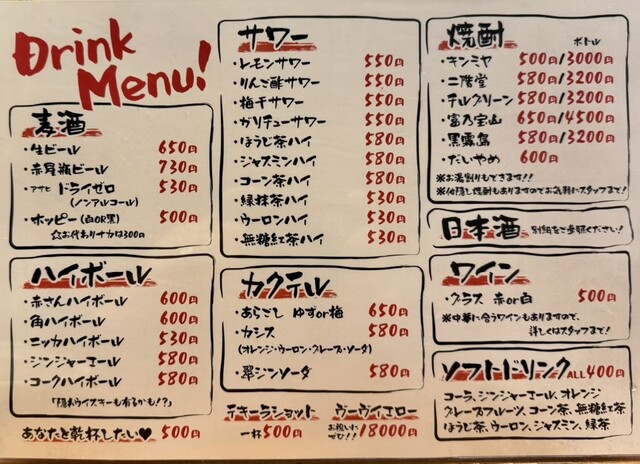 Drink
Menu!
麦酒
・生ビール 650円
・赤星瓶ビール 730円
・アサヒ ドライゼロ 530円
(ノンアルコール)
・ホッピー(白OR黒) 500円
☆お代わりナカは300円
ハイボール
・赤さんハイボール 600円
・角ハイボール 600円
・ニッカハイボール 530円
・ジンジャーエール 580円
・コークハイボール 580円
「隠れウイスキーも有るかも!?」
あなたと乾杯したい♥ 500円
サワー
・レモンサワー 550円
・りんご酢サワー 550円
・梅干サワー 550円
・ガリチューサワー 550円
・ほうじ茶ハイ 580円
・ジャスミンハイ 580円
・コーン茶ハイ 580円
・緑抹茶ハイ 530円
・ウーロンハイ 530円
・無糖紅茶ハイ 530円
カクテル
・あらごし ゆずor梅 650円
・カシス 580円
(オレンジ・ウーロン・グレープ・ソーダ)
・翠ジンソーダ 580円
テキーラショット
一杯500円
ヴーヴイエロー
お祝いにぜひ!! 18000円
焼酎 ボトル
・キンミヤ 500円/3000円
・二階堂 580円/3200円
・チルグリーン 580円/3200円
・富乃宝山 650円/4500円
・黒霧島 580円/3200円
・だいやめ 600円
※お湯割りもできます!!
※他隠し焼酎もありますのでお気軽にスタッフまで!
日本酒 別紙をご参照ください!
ワイン
・グラス 赤or白 500円
※中華に合うワインもありますので、
詳しくはスタッフまで!
ソフトドリンク ALL400円
コーラ、ジンジャーエール、オレンジ
グレープフルーツ、コーン茶、無糖紅茶
ほうじ茶、ウーロン、ジャスミン、緑茶